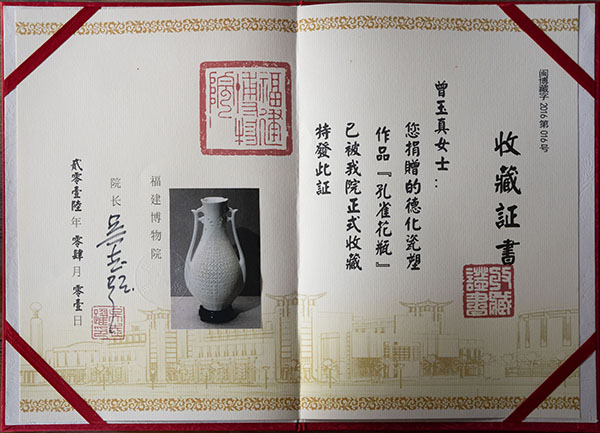 闽博藏字2016第016号
收藏証書
收藏證書
曾玉真女士：
您捐赠的德化瓷塑
作品『孔雀花瓶』
已被我院正式收藏
特發此証
福建博物院
福建博物院
院长
贰零壹陸年零肆月零壹日